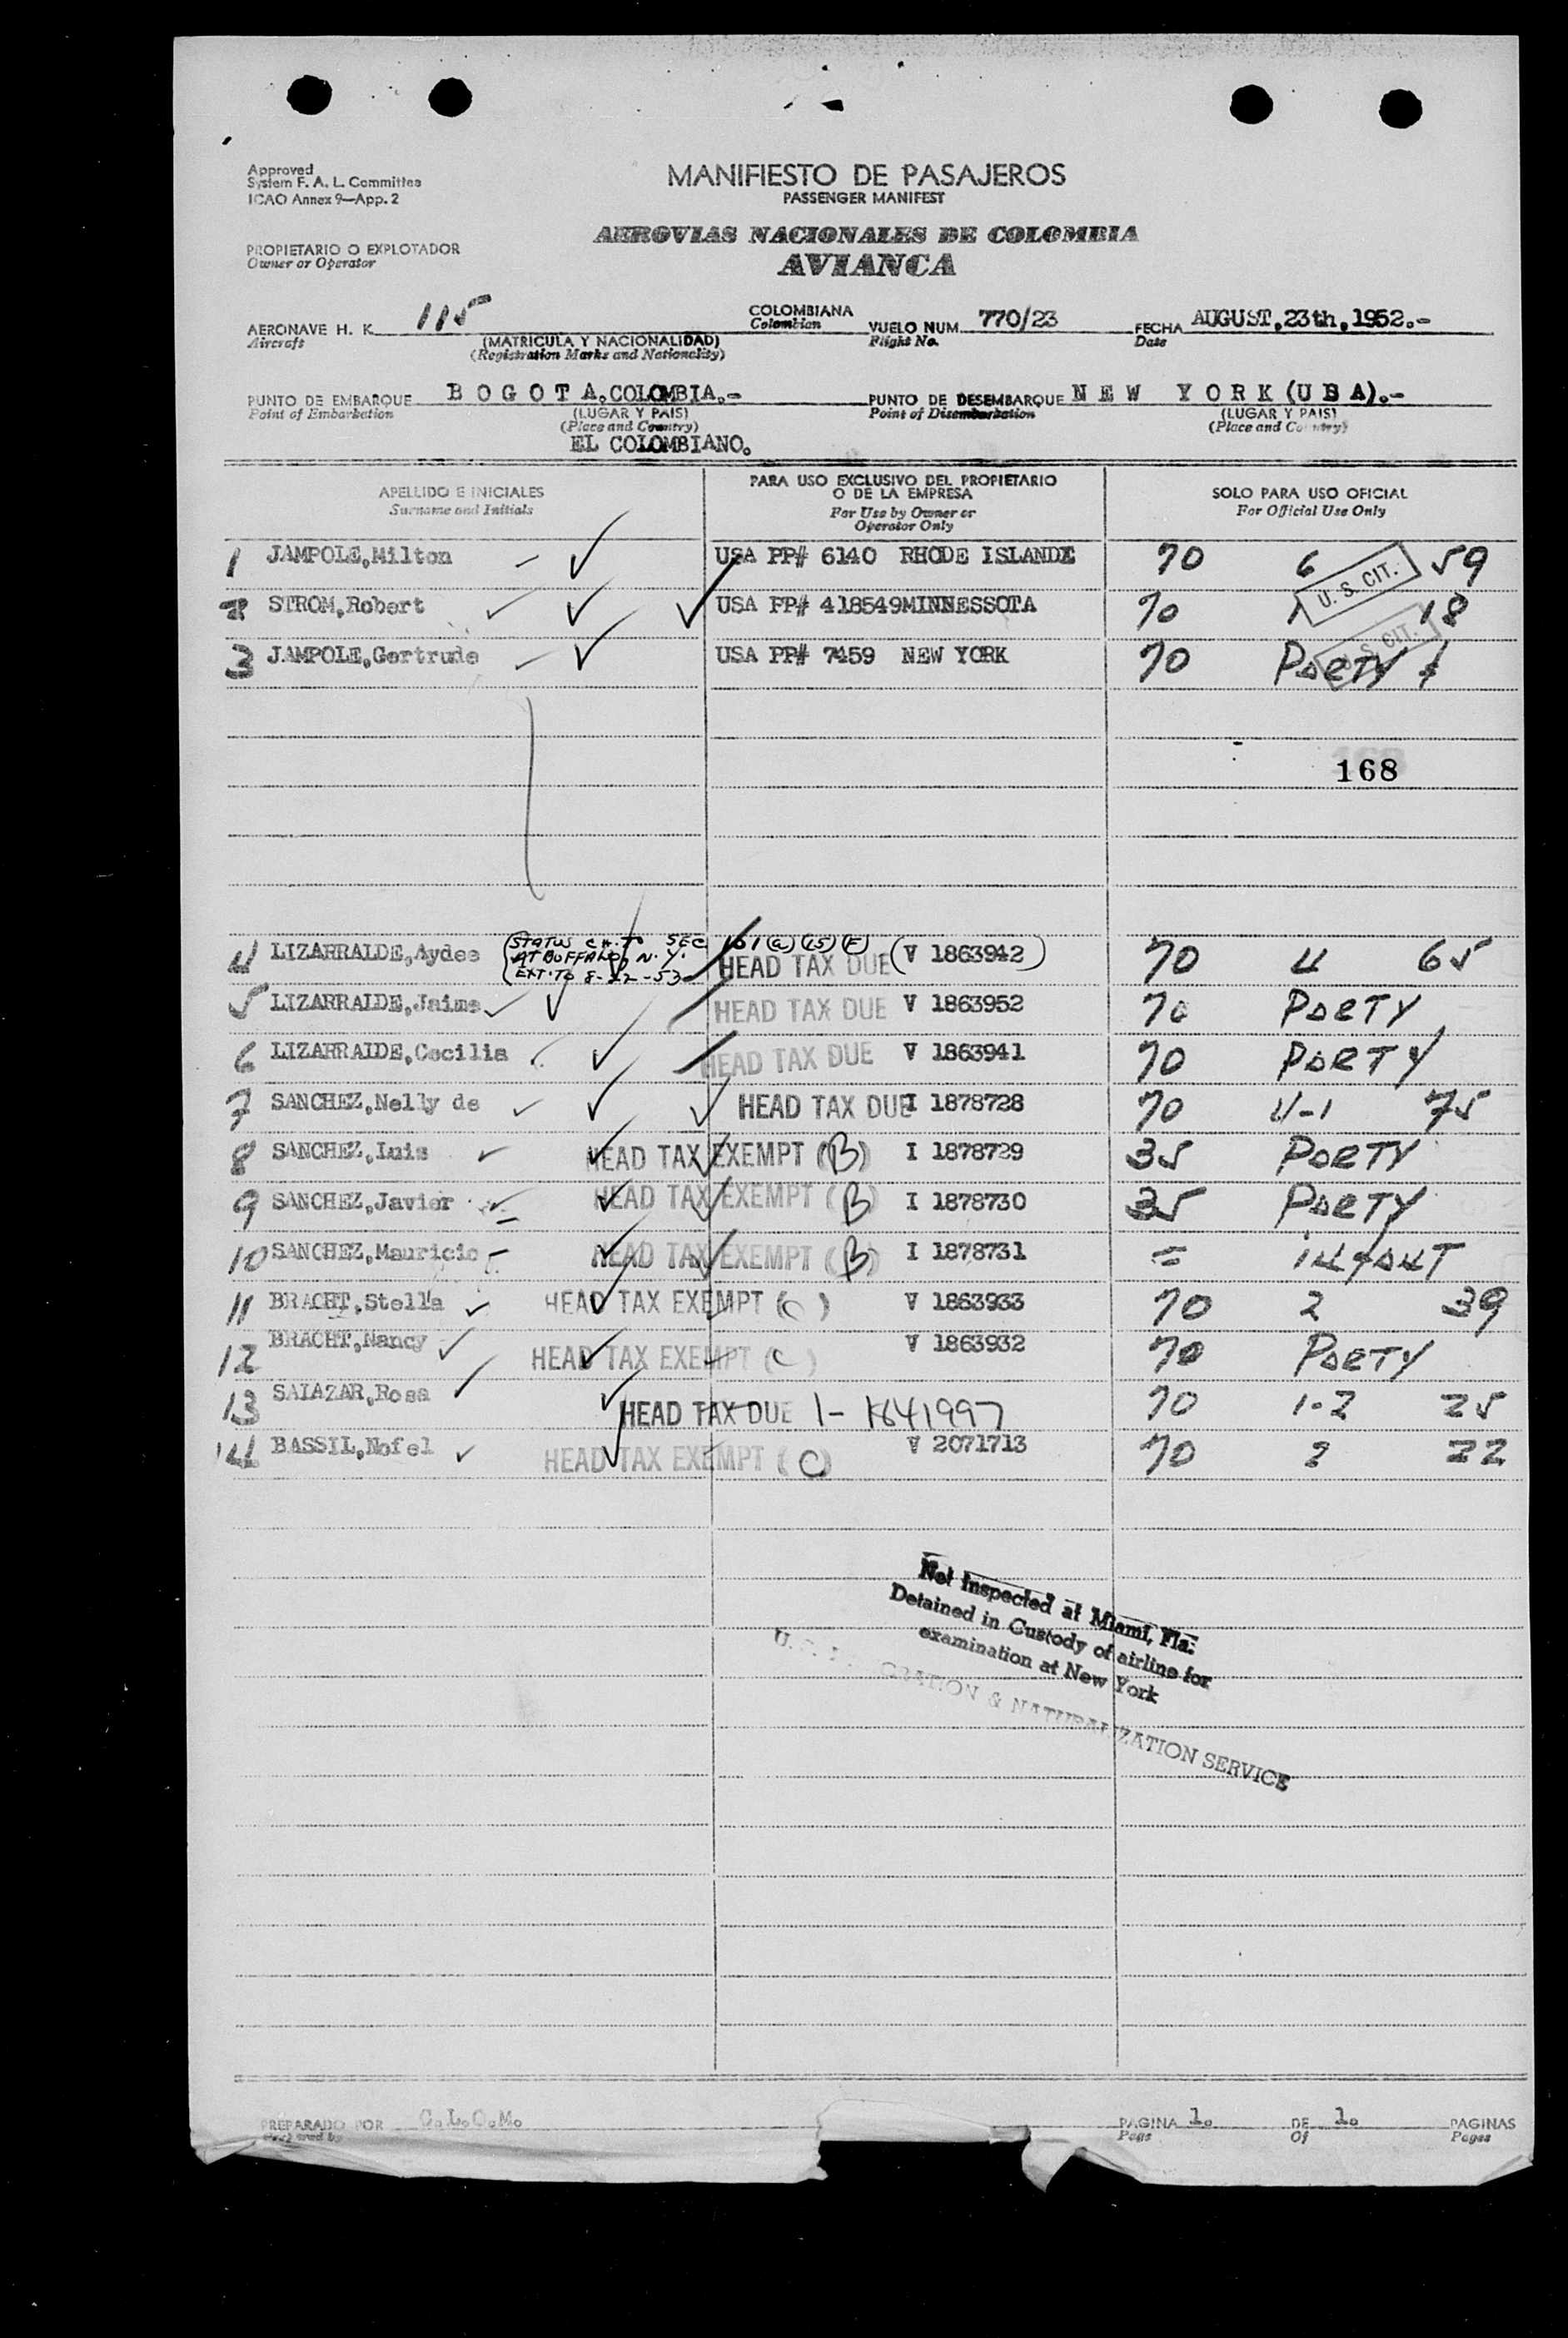 Approved
System F. A. L. Committee
ICAO Annex 9—App. 2
MANIFIESTO DE PASAJEROS
PASSENGER MANIFEST
PROPIETARIO O EXPLOTADOR
Owner or Operator
AEROVIAS NACIONALES DE COLOMBIA
AVIANCA
AERONAVE H. K. 115 COLOMBIANA VUELO NUM. 770/23 FECHA AUGUST,23th,1952.-
Aircraft (MATRICULA Y NACIONALIDAD) Colombian Flight No. Date
(Registration Marks and Nationality)
PUNTO DE EMBARQUE B O G O T A.COLOMBIA.- PUNTO DE DESEMBARQUE N E W Y O R K (U S A).-
Point of Embarkation (LUGAR Y PAIS) Point of Disembarkation (LUGAR Y PAIS)
(Place and Country) (Place and Country)
EL COLOMBIANO.
APELLIDO E INICIALES PARA USO EXCLUSIVO DEL PROPIETARIO SOLO PARA USO OFICIAL
Surname and Initials O DE LA EMPRESA For Official Use Only
For Use by Owner or
Operator Only
1 JAMPOLE,Milton USA PP# 6140 RHODE ISLANDE 70 6 59
U. S. CIT.
2 STROM,Robert USA PP# 418549MINNESSOTA 70 1 18
U. S. CIT.
3 JAMPOLE,Gertrude USA PP# 7459 NEW YORK 70 PARTY
168
4 LIZARRALDE,Aydee STATUS CH. TO SEC 101 (a) (15) (F) V 1863942 70 4 65
AT BUFFALO, N. Y. HEAD TAX DUE
EXT. TO 8-22-53
5 LIZARRALDE,Jaime HEAD TAX DUE V 1863952 70 PARTY
6 LIZARRALDE,Cecilia HEAD TAX DUE V 1863941 70 PARTY
7 SANCHEZ,Nelly de HEAD TAX DUE I 1878728 70 4-1 75
8 SANCHEZ,Luis HEAD TAX EXEMPT (B) I 1878729 35 PARTY
9 SANCHEZ,Javier HEAD TAX EXEMPT (B) I 1878730 35 PARTY
10 SANCHEZ,Mauricio HEAD TAX EXEMPT (B) I 1878731 = INFANT
11 BRACHT,Stella HEAD TAX EXEMPT (C) V 1863933 70 2 39
12 BRACHT,Nancy HEAD TAX EXEMPT (C) V 1863932 70 PARTY
13 SALAZAR,Rosa HEAD TAX DUE I- 1641997 70 1-2 25
14 BASSIL,Nofel HEAD TAX EXEMPT (C) V 2071713 70 2 22
Not Inspected at Miami, Fla.
Detained in Custody of airline for
examination at New York
U. S. IMMIGRATION & NATURALIZATION SERVICE
PREPARADO POR C.L.O.M. PAGINA 1. DE 1. PAGINAS
Prepared by Page Of Pages